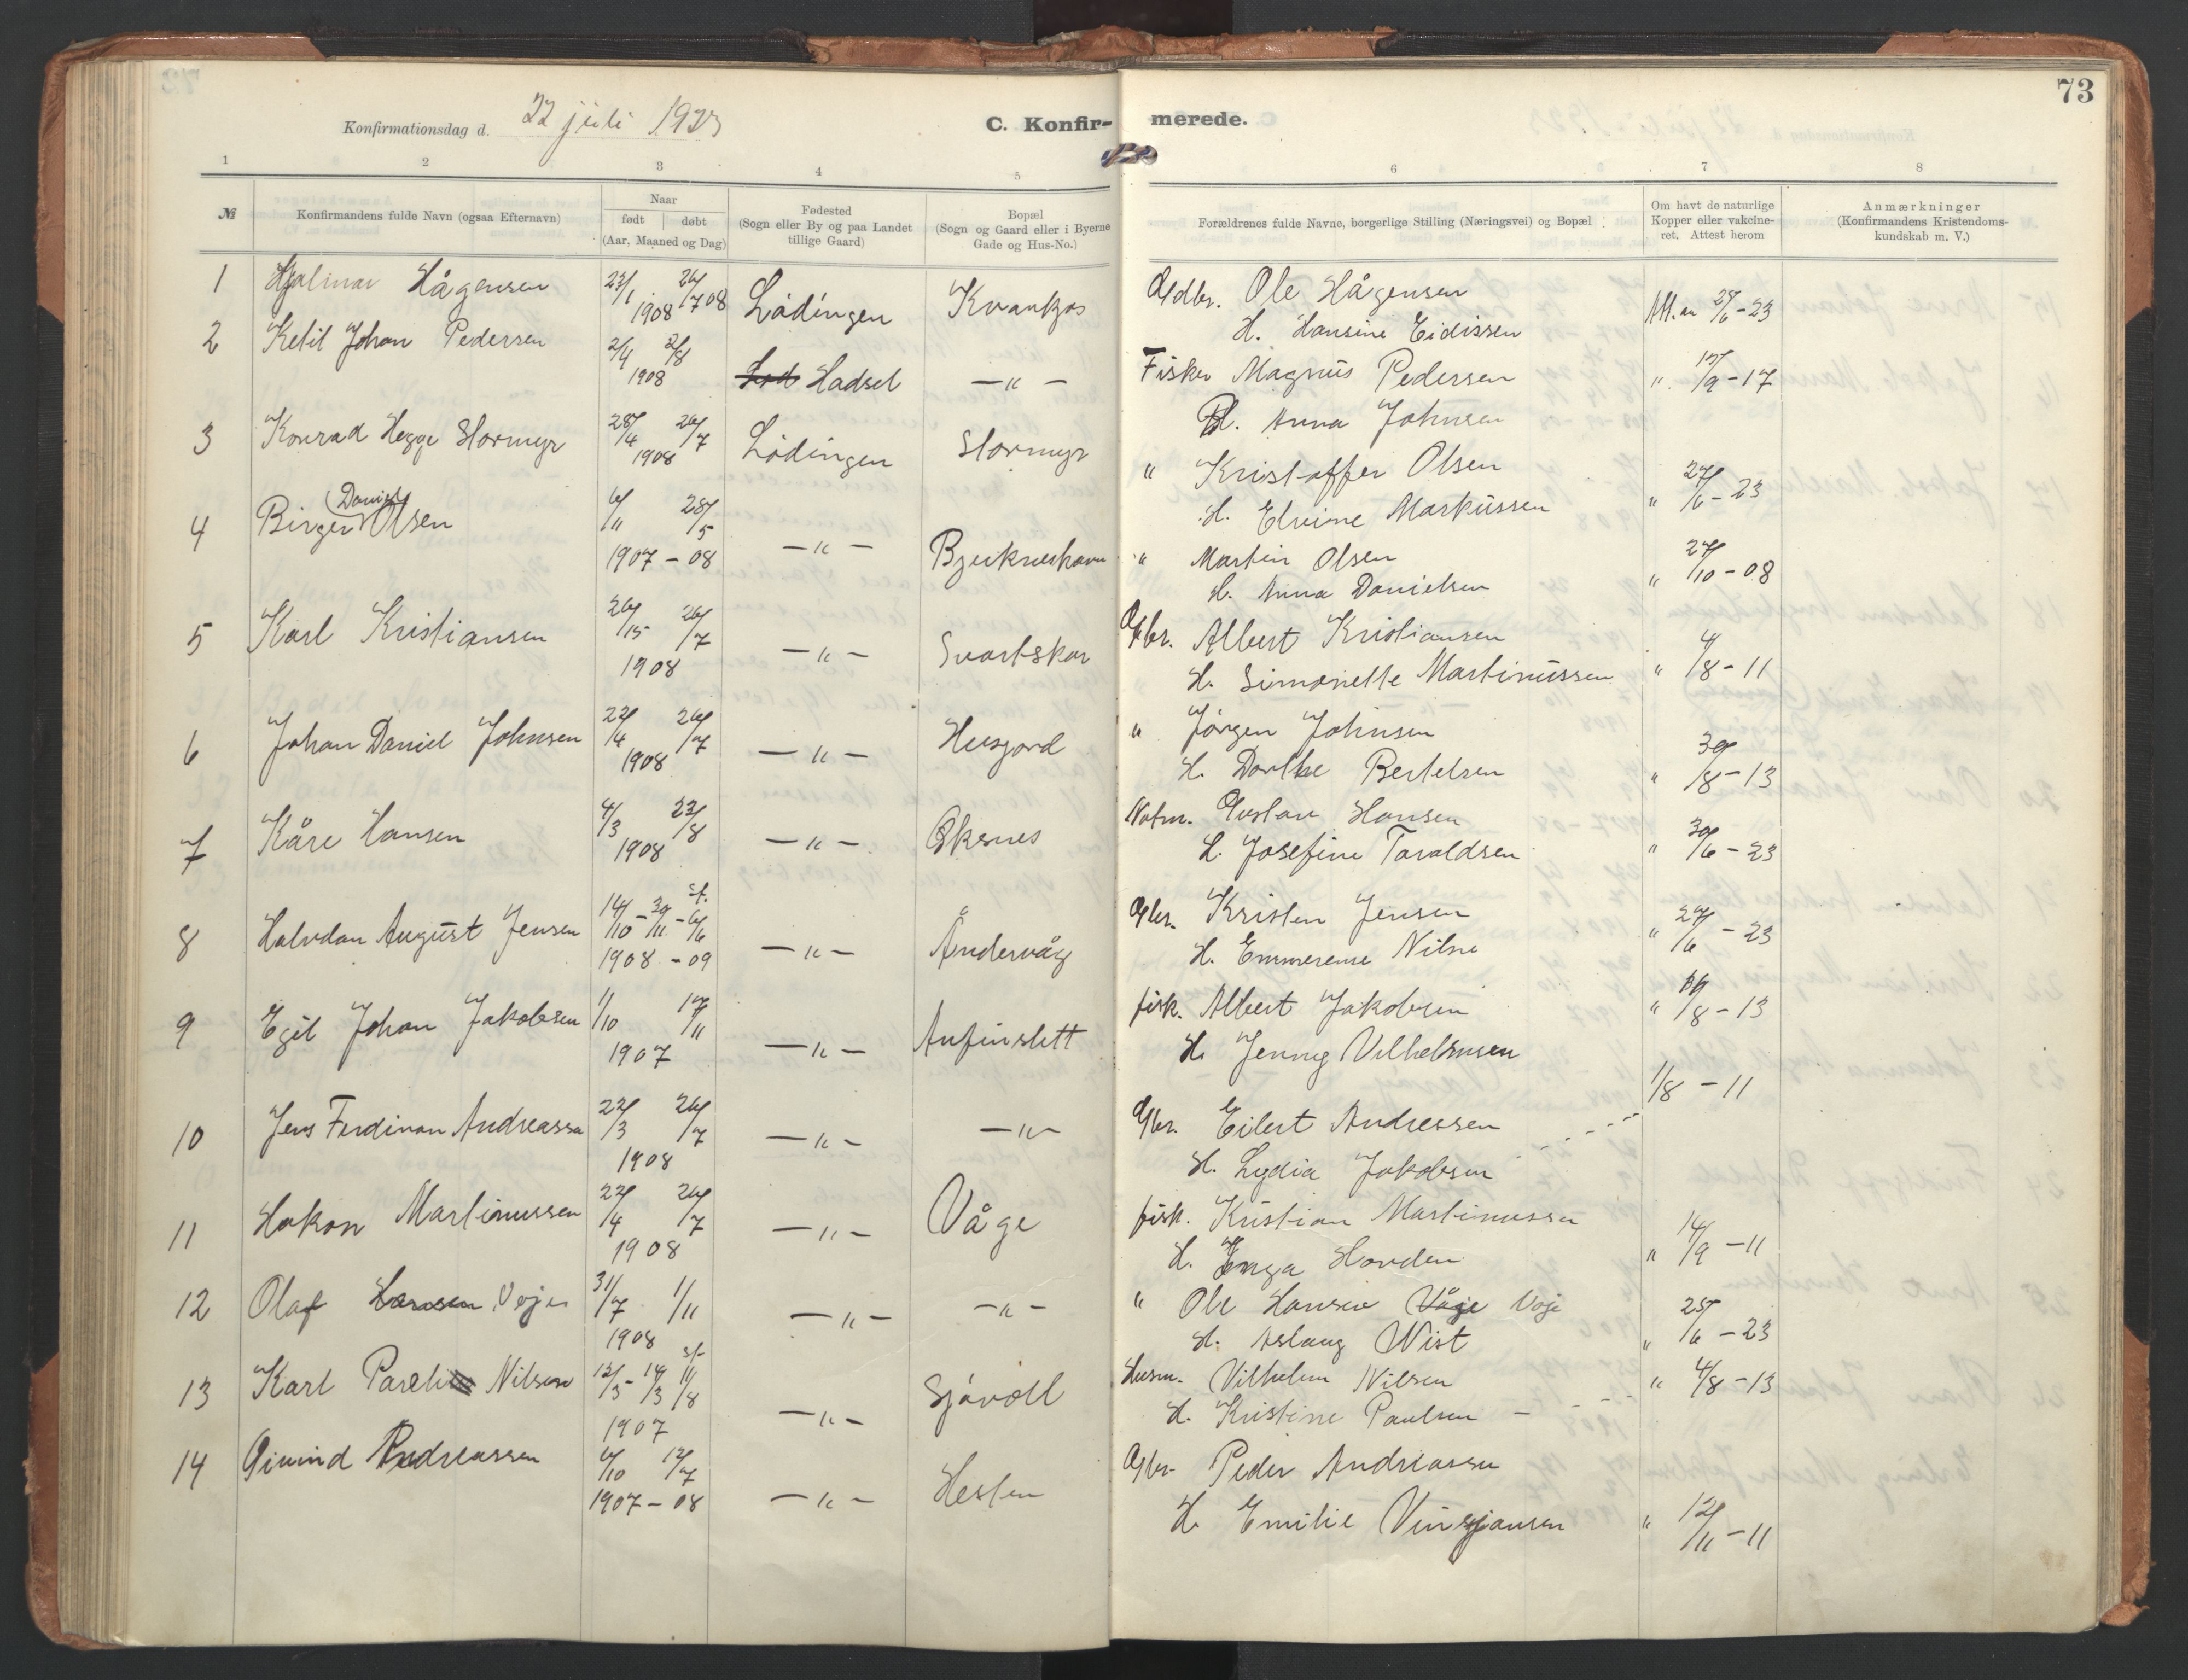 73
Konfirmationsdag d. 22 juli 1923
C. Konfir- merede.
1 2 3 4 5 6 7 8
№
Konfirmandens fulde Navn (ogsaa Efternavn)
Naar
født døbt
(Aar, Maaned og Dag)
Fødested
(Sogn eller By og paa Landet
tillige Gaard)
Bopæl
(Sogn og Gaard eller i Byerne
Gade og Hus-No.)
Forældrenes fulde Navne, borgerlige Stilling (Næringsvei) og Bopæl
Om havt de naturlige
Kopper eller vakcine-
ret. Attest herom
Anmærkninger
(Konfirmandens Kristendoms-
kundskab m. V.)
1 Hjalmar Hågensen 23/1 26/7 08 Lødingen Gdbr. Ole Hågensen Att. av 28/6-23
1908 H. Hansine Eidissen
2 Ketil Johan Pedersen 2/4 2/8 Hadsel —"— Fisker Magnus Pedersen " 17/9-17
1908 H. Anna Johnsen
3 Konrad Hegge Stormyr 28/4 26/7 Lødingen Stormyr " Kristoffer Olsen " 27/6-23
1908 H. Elvine Markussen
4 Birger Daniel Olsen 6/11 28/5 —"— " Martin Olsen " 24/10-08
1907-08 H. Anna Danielsen
5 Karl Kristiansen 26/15 26/7 —"— Svartskar Gbr. Albert Kristiansen " 4/8-11
1908 H. Simonette Martinussen
6 Johan Daniel Johnsen 22/4 26/7 —"— Husjord " Jørgen Johnsen " 30/8-13
1908 H. Dorthe Bertelsen
7 Kåre Hansen 4/3 23/8 —"— Øksnes Notm. Gustav Hansen " 30/6-23
1908 H. Josefine Taraldsen
8 Halvdan August Jensen 14/10-30/11-6/6 st. —"— Åndervåg Gbr. Kristen Jensen " 27/6-23
1908-09 H. Emmerense Nilsen
9 Egil Johan Jakobsen 1/10 17/11 —"— Anfinslett fisk. Albert Jakobsen " /8-13
1907 H. Jenny Vilhelmsen
10 Jens Ferdinan Andreassen 22/3 26/7 —"— —"— Gbr. Eilert Andressen 1/8-11
1908 H. Lydia Jakobsen
11 Hakon Martinussen 22/4 26/7 —"— Våge fisk. Kristian Martinussen " 14/9-11
1908 H. Enga Hovden
12 Olaf Hansen Voje 31/7 1/11 —"— —"— " Ole Hansen Våge Voje " 25/6-23
1908 H. Aslaug Wist
13 Karl Nilsen 12/3-14/3 11/8 st. —"— Sjøvoll Husm. Vilhelm Nilsen " 4/8-13
1907 H. Kristine Paulsen
14 Øivind Andreassen 6/10 12/7 —"— Hesten Gbr. Peder Andreassen " 12/11-11
1907-08 H. Emilie